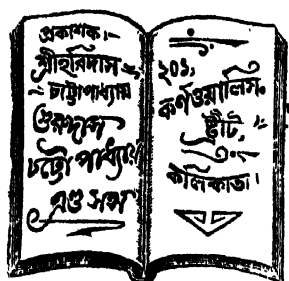 প্রকাশক।—
শ্রীহরিদাস
চট্টোপাধ্যায়
গুরুদাস
চট্টোপাধ্যায়
এণ্ড সন্স
২০১,
কর্ণওয়ালিস্
ষ্ট্রীট,
কলিকাতা।